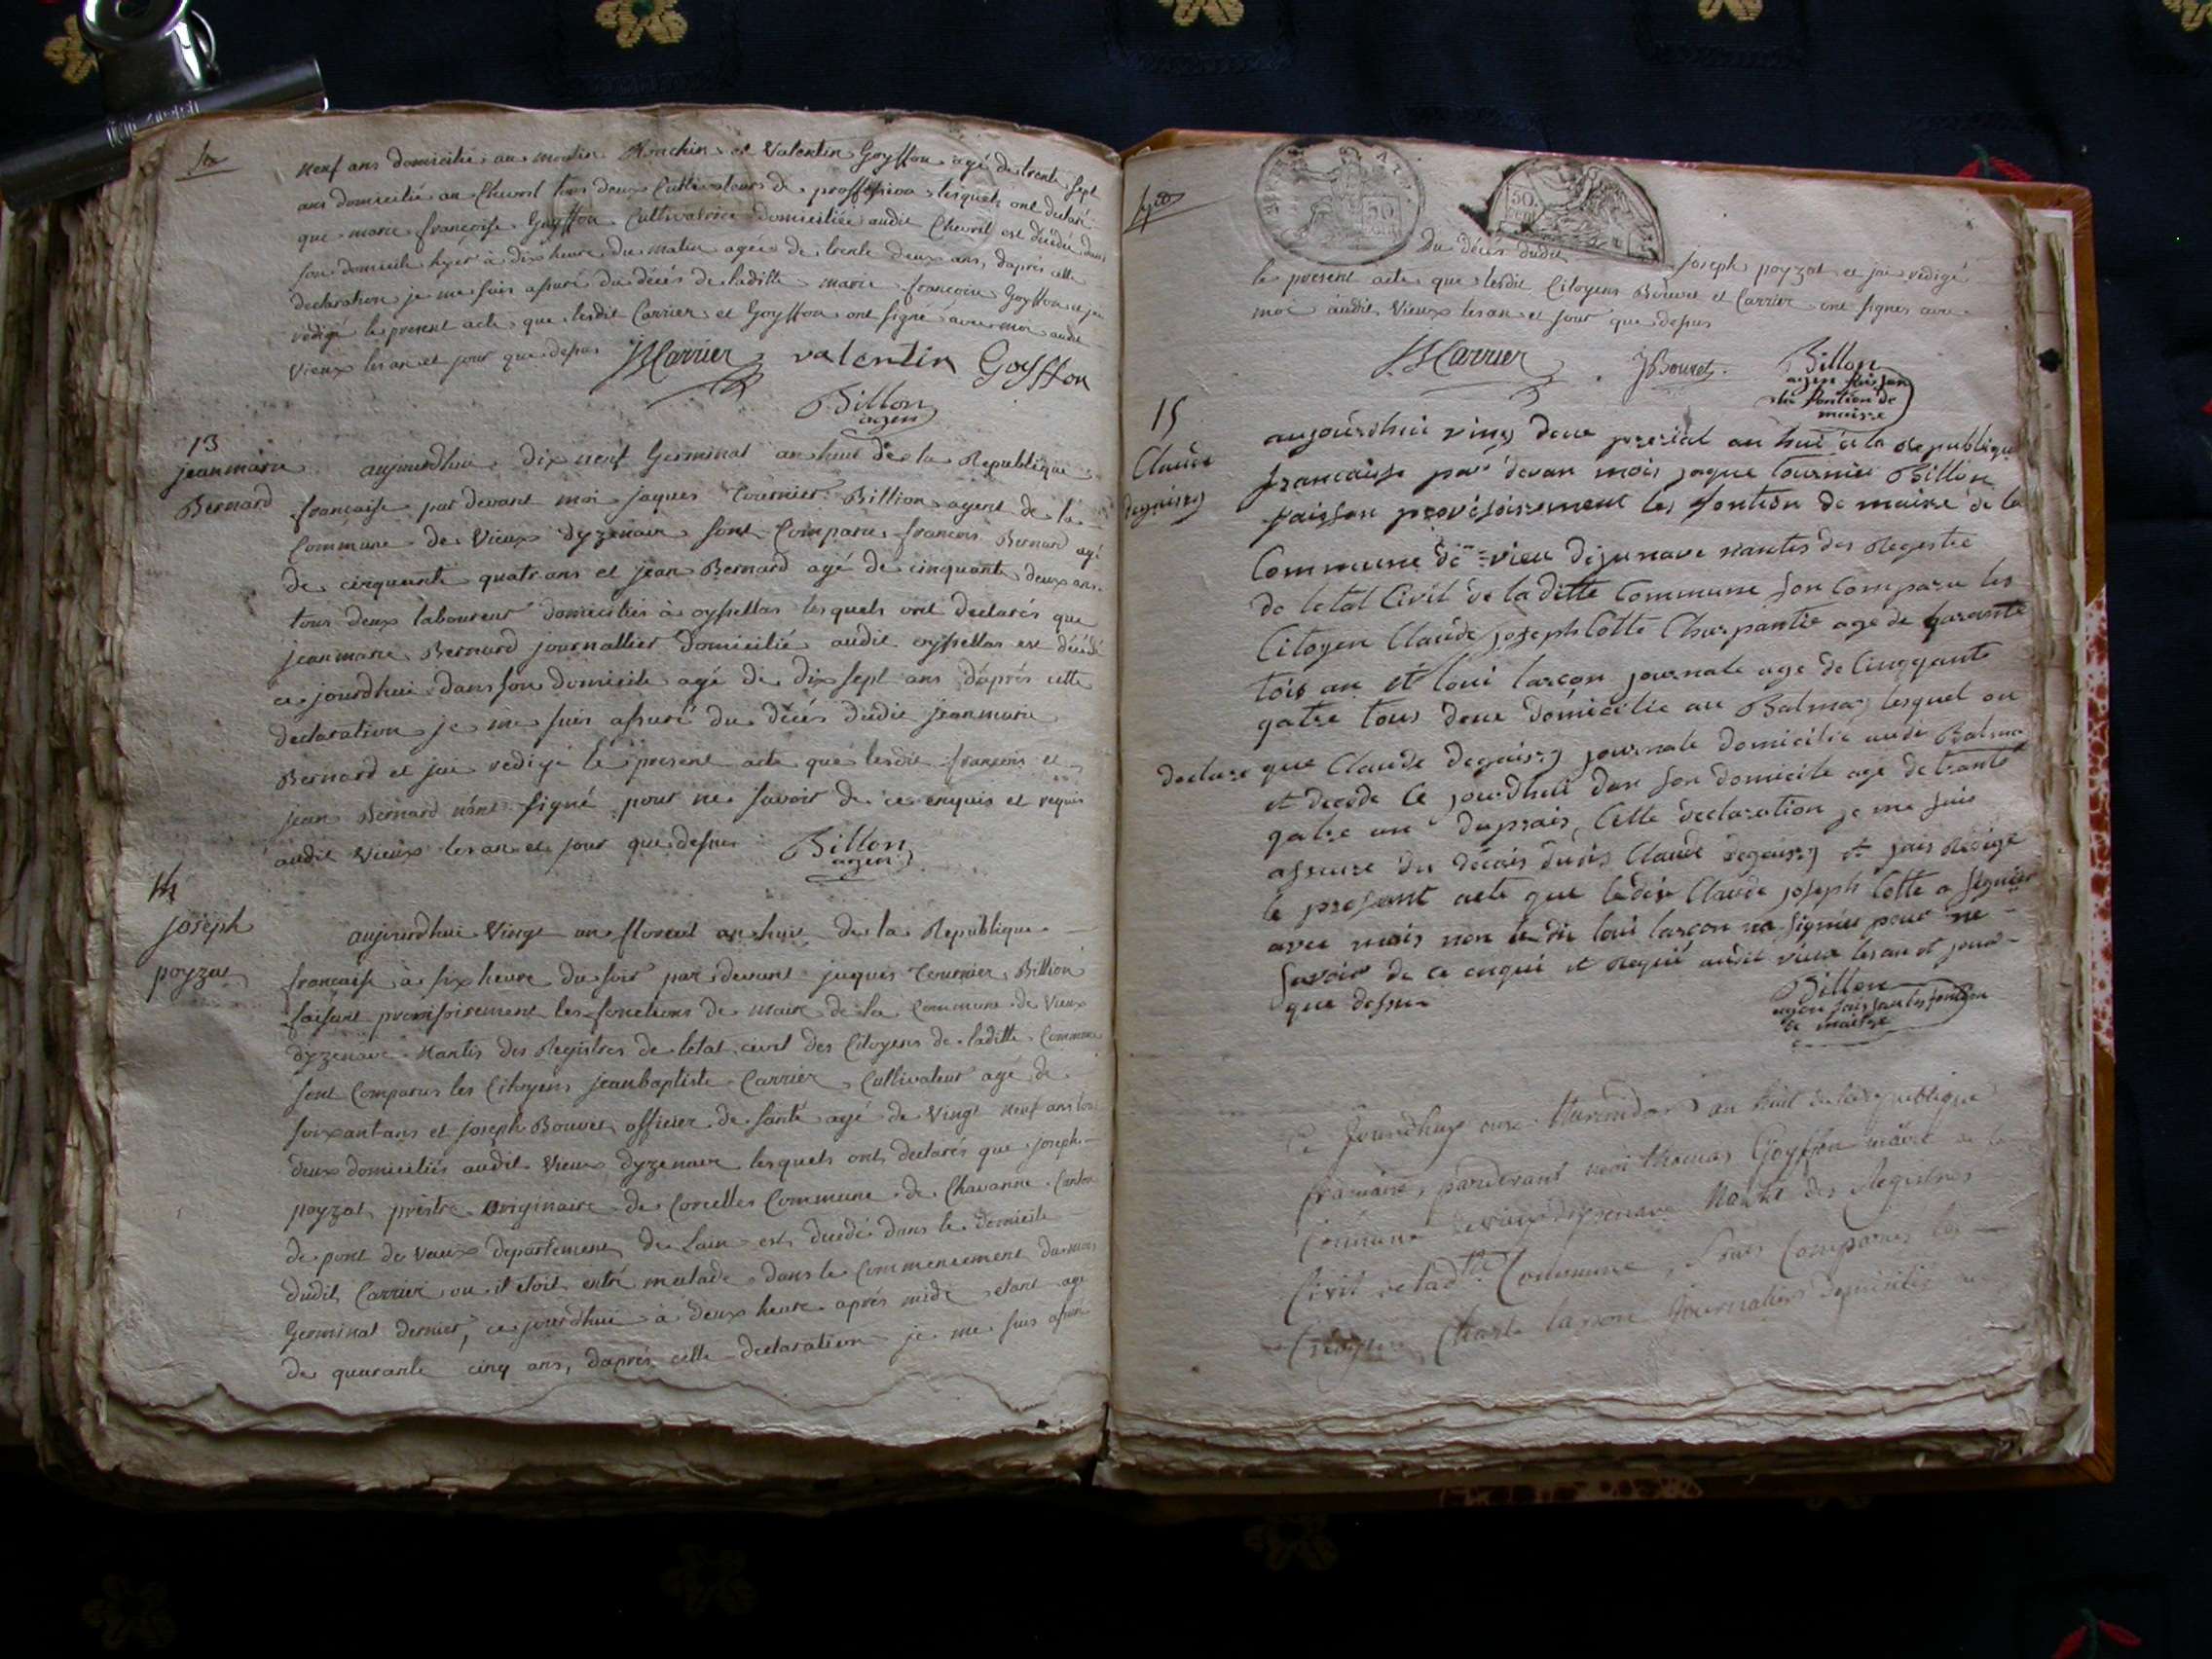 neuf ans domicilié au moulin et Valentin Goyffon agé de trente sept
ans domicilié au Chevril tous deux Cultivateurs de proffesion lesquels ont declaré
que marie françoise Goyffon Cultivatrice domiciliée audit Chevril est décédé dans
son domicile hyer à dix heure du matin agée de trente deux ans, daprés cette
declaration je me suis assuré du décés de laditte marie françoise Goyffon et jai
redigé le present acte que lesdit Carrier et Goyffon ont signé avec moi audit
Vieux les an et jour que dessus JBCarrier valentin Goyffon
Billon
agen
13
jeanmarie
Bernard
aujourdhui dix neuf Germinal an huit de la Republique
francaise par devant moi jaques Tournier Billion agent de la
Commune de Vieux dyzenave sont Comparu francois Bernard agé
de cinquante quatr ans et jean Bernard agé de cinquante deux ans
tous deux laboureur domiciliés à oyssellas lesquels ont declarés que
jeanmarie Bernard journallier domicilié audit oyssellas est décédé
ce jourdhui dans son domicile agé de dix sept ans d'aprés cette
declaration je me suis assuré du décés dudit jeanmarie
Bernard et jai redigé le present acte que lesdit francois et
jean Bernard n'ont signé pour ne savoir de ce enquis et requis
audit Vieux les an et jour que dessus Billon
agen
14
joseph
poyzat
aujourdhui Vingt un floreal an huit de la Republique
francaise à six heure du soir par devant jaques Tournier Billion
faisant provisoirement les fonctions de maire de la Commune de Vieux
dyzenave Nantis des Registres de letat civil des Citoyens de laditte Commune
sont Comparus les Citoyens jeanbaptiste Carrier Cultivateur agé de
soixantans et joseph Bouvet officier de santé agé de Vingt neuf ans tous
deux domiciliés audit Vieux dyzenave lesquels ont declarés que joseph
poyzat prêtre originaire de Corcelles Commune de Chavanne Canton
de pont de Vaux departement de Lain est decedé dans le domicile
dudit Carrier ou il etoit entré malade dans le Commencement du mois
Germinal dernier, ce jourdhui à deux heure aprés midi etant agé
de quarante cinq ans, daprés cette declaration je me suis assuré
50
50
cent
Du décés dudit joseph poyzat et jai redigé
le present acte que lesdit Citoyens Bouvet et Carrier ont signés avec
moi audit Vieux les an et jour que dessus
JBCarrier JBouvet Billon
agen faisan
les fontion de
maire
15
Claude
aujourdhui ving deux prerial an huit de la Republique
francaise par devan mois jaque tournier Billon
faisson provisoirement les fontion de maire de la
Commune de vieu dizenave nantis des Registre
de letat Civil de la ditte Commune son Comparu les
Citoyen Claude joseph Cotte Charpantie age de garante
tois an et loui larcon journale age de Cinqgante
gatre tous deux domicilie au Balmay lesquel on
declare que Claude journale domicilie audi Balma
et decede Ce jourdhui dan son domicile age de trante
gatre an daprais Cette declaration je me suis
assure du décais dudis Claude et jais Redige
le present acte que ledit Claude joseph Cotte a signier
avec mois non ledit loui larcon na signier pour ne
Savoir de ce enqui et Requi audit vieu les an et jour
que dessu
Billon
agen faisson les fontion
de maire
Ce Jourdhuy onze thermidor an huit de la Republique
francaise, pardevant moi thomas Goyffon maire de la
Commune de vieux dyzenave Nantit des Registres
Civil de lad.te Commune, sont Comparus les
Citoyens Charle larson Journaliers domicilié